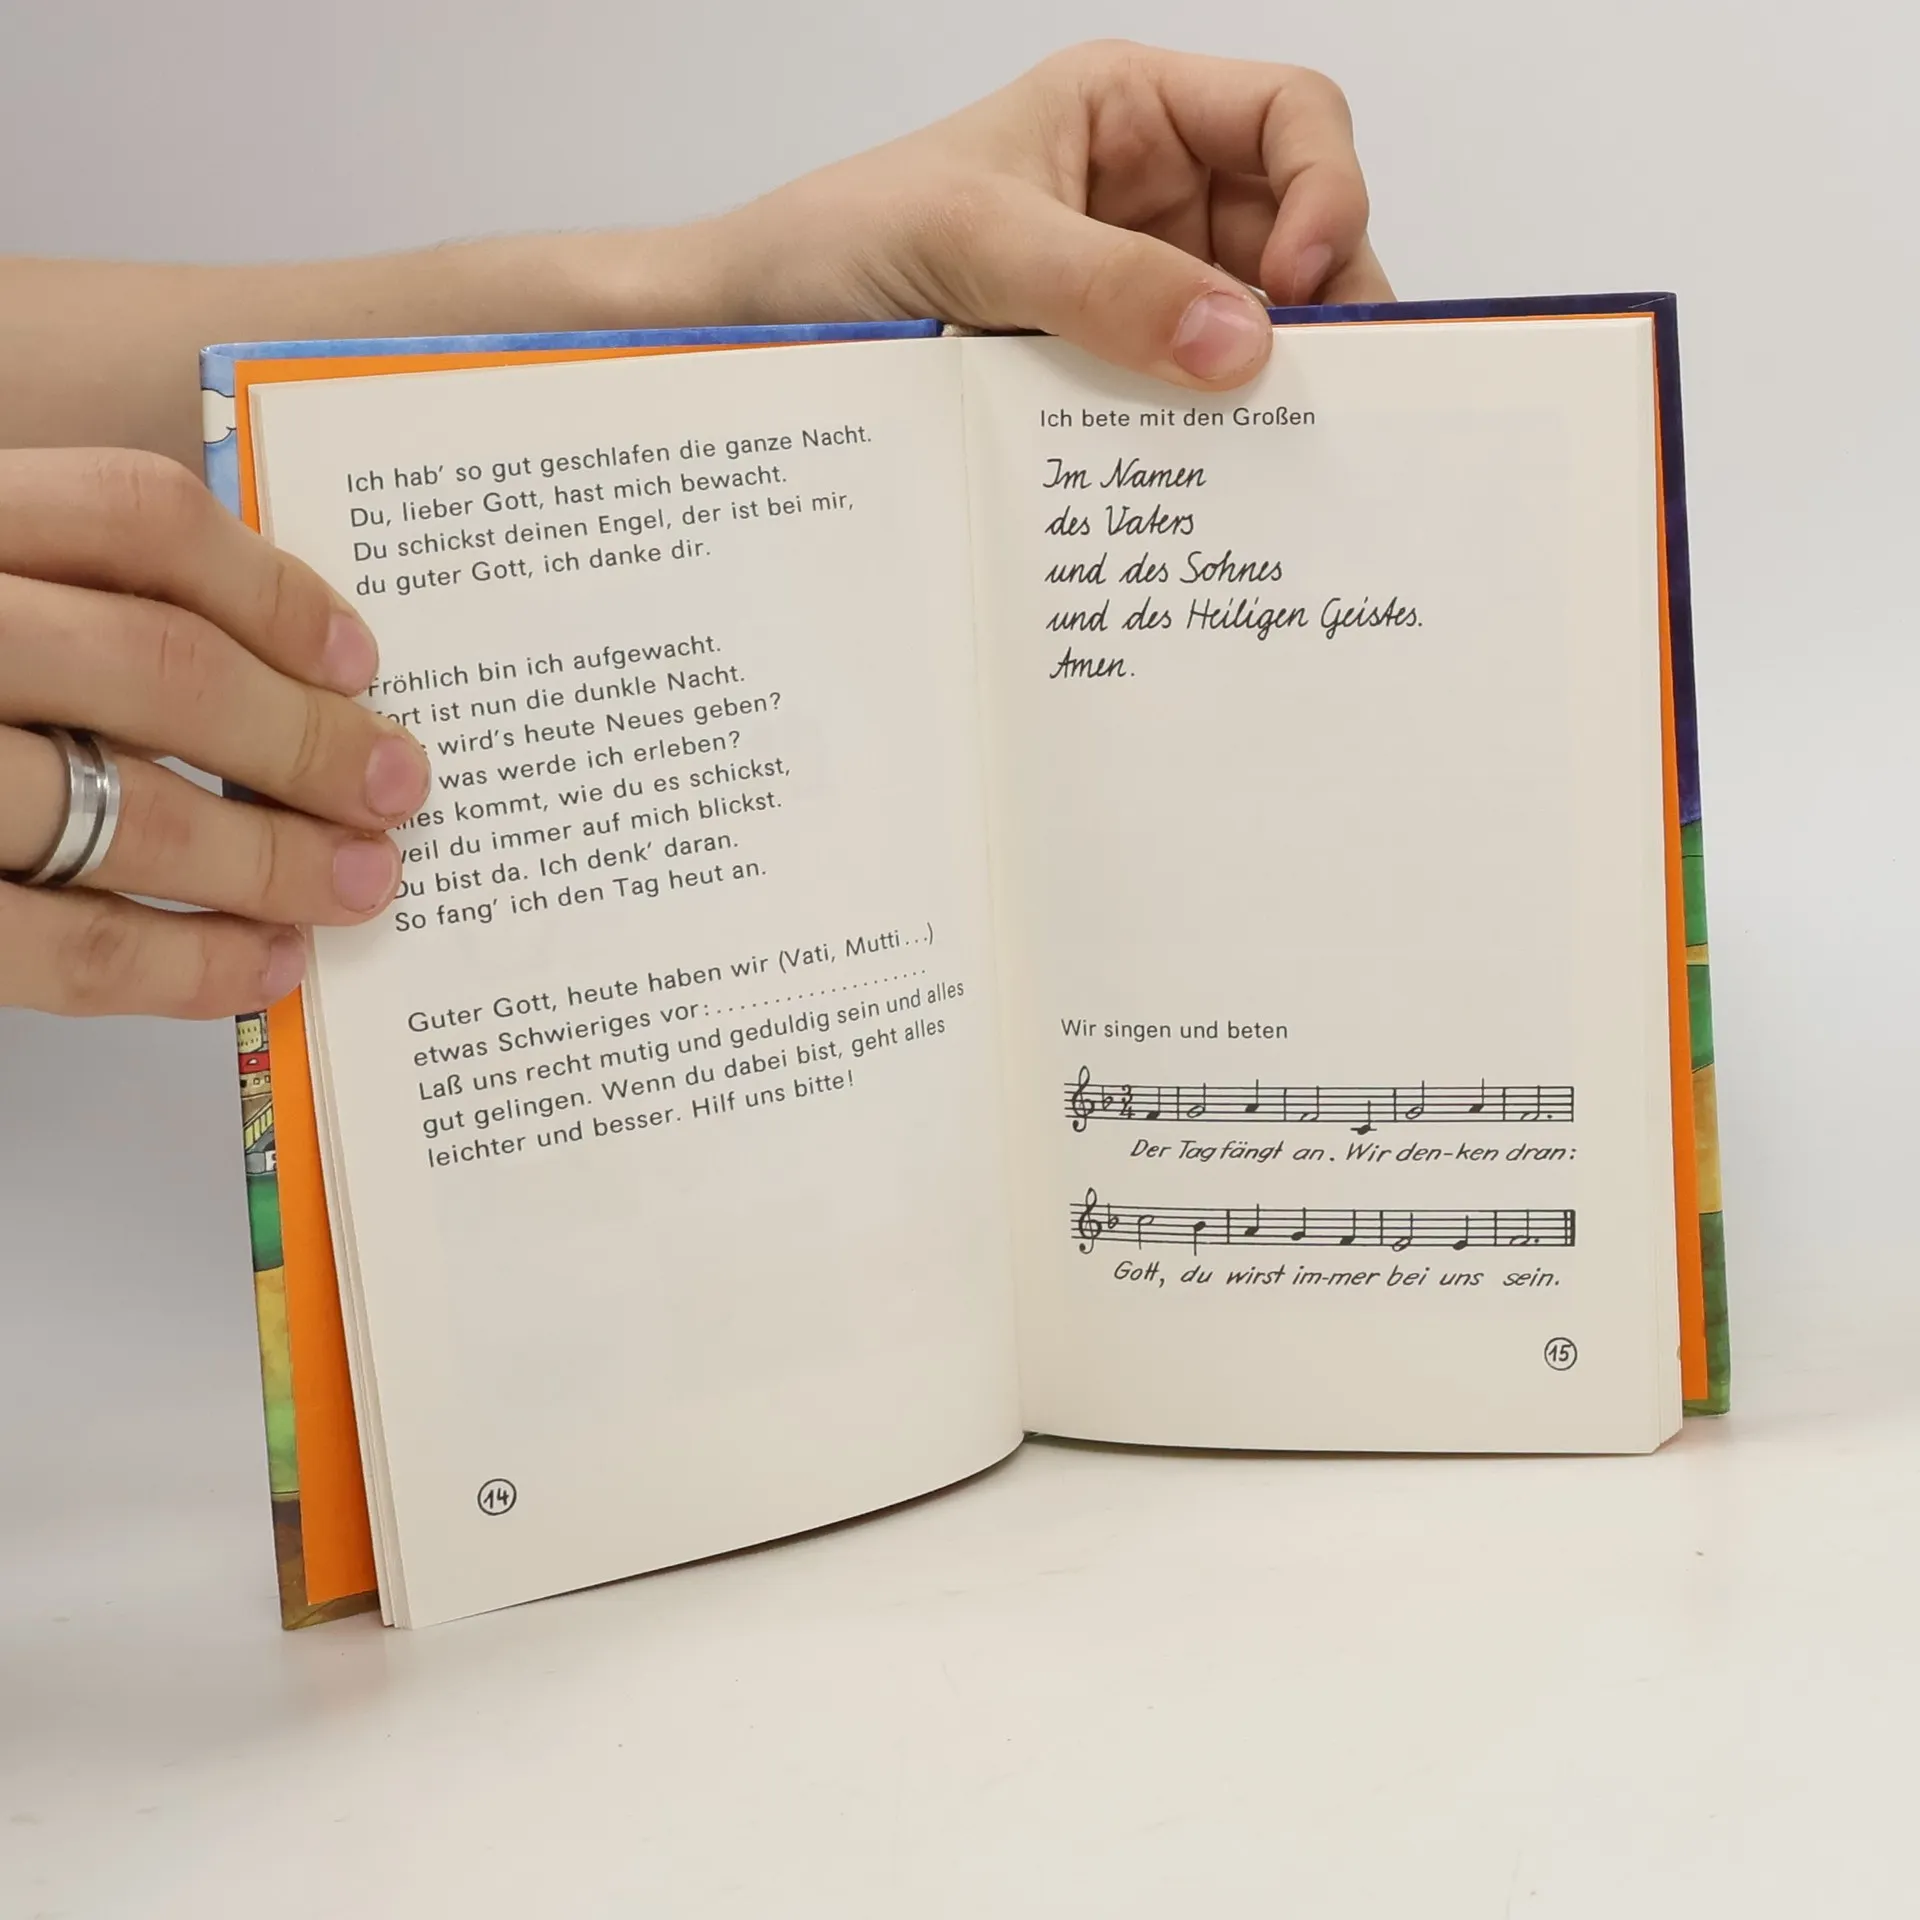 Ich hab' so gut geschlafen die ganze Nacht.
Du, lieber Gott, hast mich bewacht.
Du schickst deinen Engel, der ist bei mir,
du guter Gott, ich danke dir.
Fröhlich bin ich aufgewacht.
ist nun die dunkle Nacht.
wird's heute Neues geben?
was werde ich erleben?
kommt, wie du es schickst,
weil du immer auf mich blickst.
Du bist da. Ich denk' daran.
So fang' ich den Tag heut an.
Guter Gott, heute haben wir (Vati, Mutti...)
etwas Schwieriges vor:...................
Laß uns recht mutig und geduldig sein und alles
gut gelingen. Wenn du dabei bist, geht alles
leichter und besser. Hilf uns bitte!
14
Ich bete mit den Großen
Im Namen
des Vaters
und des Sohnes
und des Heiligen Geistes.
Amen.
Wir singen und beten
3/4
Der Tag fängt an. Wir den-ken dran:
Gott, du wirst im-mer bei uns sein.
15